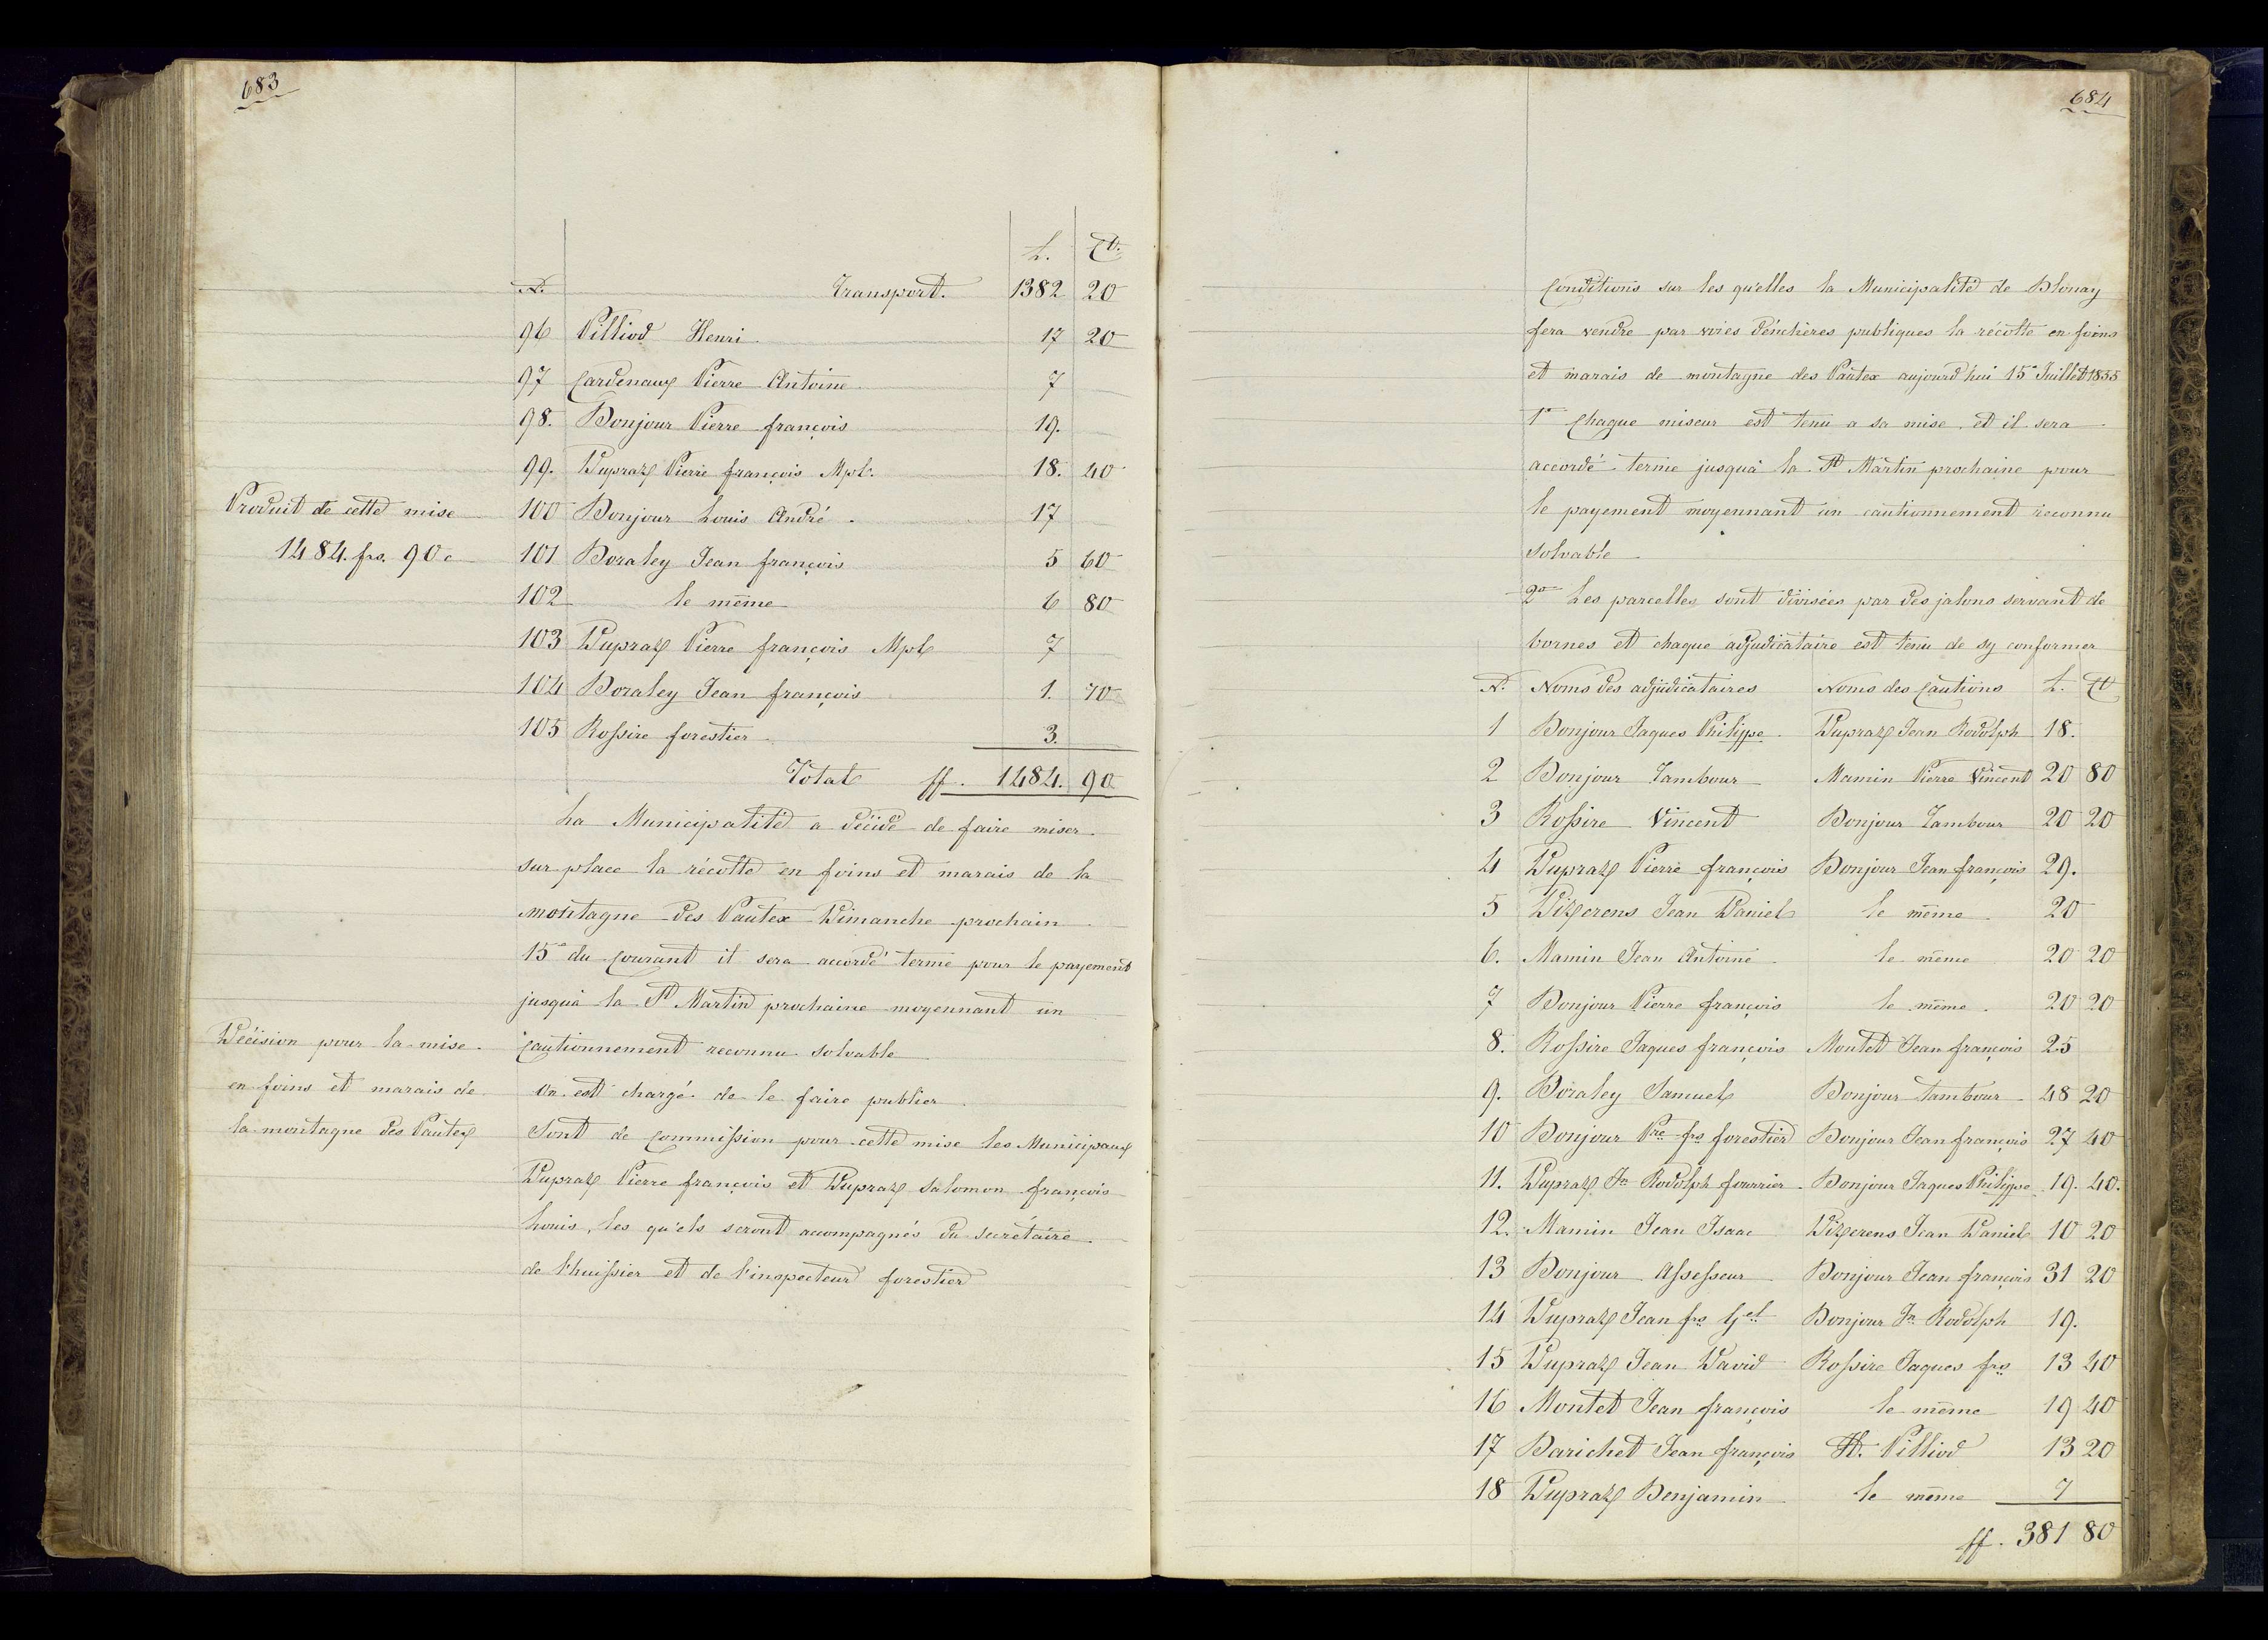 683
L. Ct.
N. Transport. 1382 20
96 Pilliod Henri. 17 20
97 Cardenaux Pierre Antoine 7
98. Bonjour Pierre françois 19.
99. Dupraz Pierre françois Mpl. 18. 40
100 Bonjour Louis André. 17
101 Boraley Jean françois 5 60
102 le même 6 80
103 Dupraz Pierre françois Mpl 7
104 Boraley Jean françois 1. 70
105 Rossire forestier 3.
Total ff. 1484. 90
Produit de cette mise
1484. frs. 90 c
La Municipalité a décidé de faire miser
sur place la récolte en foins et marais de la
montagne des Pautex Dimanche prochain
15e du Courant il sera accordé terme pour le payement
jusqu'à la St Martin prochaine moyennant un
Cautionnement reconnu solvable
on est chargé de le faire publier
Sont de Commission pour cette mise les Municipaux
Dupraz Pierre françois et Dupraz Salomon françois
Louis, les qu'els seront accompagnés du secrétaire
de l'huissier et de l'inspecteur forestier
Décision pour la mise
en foins et marais de
la montagne des Pautex
684
Conditions sur les qu'elles la Municipalité de Blonay
fera vendre par voies d'enchères publiques la récolte en foins
et marais de montagne des Pautex aujourd'hui 15e Juillet 1855
1° Chaque miseur est tenu a sa mise et il sera
accordé terme jusqu'à la St Martin prochaine pour
le payement moyennant un cautionnement reconnu
solvable
2° Les parcelles sont divisées par des jalons servant de
bornes et chaque adjudicataire est tenu de sy conformer
N. Noms des adjudicataires Noms des Cautions L. Ct
1 Bonjour Jaques Philippe Dupraz Jean Rodolph 18.
2 Bonjour Tambour Mamin Pierre Vincent 20 80
3 Rossire Vincent Bonjour Tambour 20 20
4 Dupraz Pierre françois Bonjour Jean françois 29.
5 Dizerens Jean Daniel le même 20
6. Mamin Jean Antoine le même 20 20
7 Bonjour Pierre françois le même 20 20
8. Rossire Jaques françois Montet Jean françois 25
9. Boraley Samuel Bonjour Tambour 48 20
10 Bonjour Pre frs forestier Bonjour Jean françois 27 40
11. Dupraz Jn Rodolph fourrier Bonjour Jaques Philippe 19. 40.
12. Mamin Jean Isaac Dizerens Jean Daniel 10 20
13 Bonjour Assesseur Bonjour Jean françois 31 20
14 Dupraz Jean frs Gel Bonjour Jn Rodolph 19.
15 Dupraz Jean David Rossire Jaques frs 13 40
16 Montet Jean françois le même 19 40
17 Barichet Jean françois H. Pilliod 13 20
18 Dupraz Benjamin le même 7
ff. 381 80